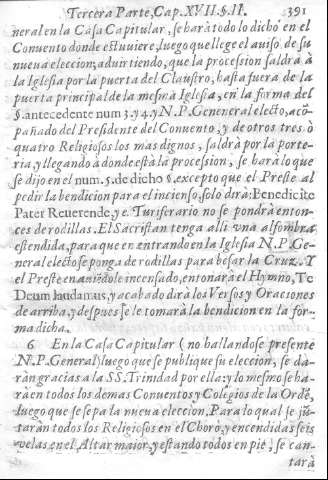 Tercera Parte, Cap. XVII. §. II. 391
neral en la Casa Capitular, se hará todo lo dicho en el
Conuento donde estuuiere, luego que llegue el auiso de su
nueua eleccion; aduirtiendo, que la procession saldrà à
la Iglesia por la puerta del Claustro, hasta fuera de la
puerta principal de la mesma Iglesia, en la forma del
§. antecedente num. 3. y 4. y N. P. Geneneral electo, acõ
pañado del Presidente del Conuento, y de otros tres ò
quatro Religiosos los mas dignos, saldrà por la porte-
ria, y llegando à donde està la procession, se harà lo que
se dijo en el num. 5. de dicho §. excepto que el Preste al
pedir la bendicion para el incienso, solo dirà: Benedicite
Pater Reuerende, y el Turiferario no se pondrà enton-
ces de rodillas. El Sacristan tenga alli vna alfombra
estendida, para que en entrando en la Iglesia N. P. Ge-
neral electo se ponga de rodillas para besar la Cruz. Y
el Preste en auiedole incensado, entonarà el Hymno, Te
Deum laudamus, y acabado dirà los Versos y Oraciones
de arriba, y despues se le tomarà la bendicion en la for-
ma dicha.
6 En la Casa Capitular (no hallandose presente
N. P. General) luego que se publique su eleccion, se da-
ràn gracias a la SS. Trinidad por ella: y lo mesmo se ha-
rà en todos los demas Conuentos y Colegios de la Ordẽ,
luego que se sepa la nueua eleccion. Para lo qual se jũ-
taràn todos los Religiosos en el Choro, y encendidas seis
velas en el Altar maior, y estando todos en pie, se can-
tarà